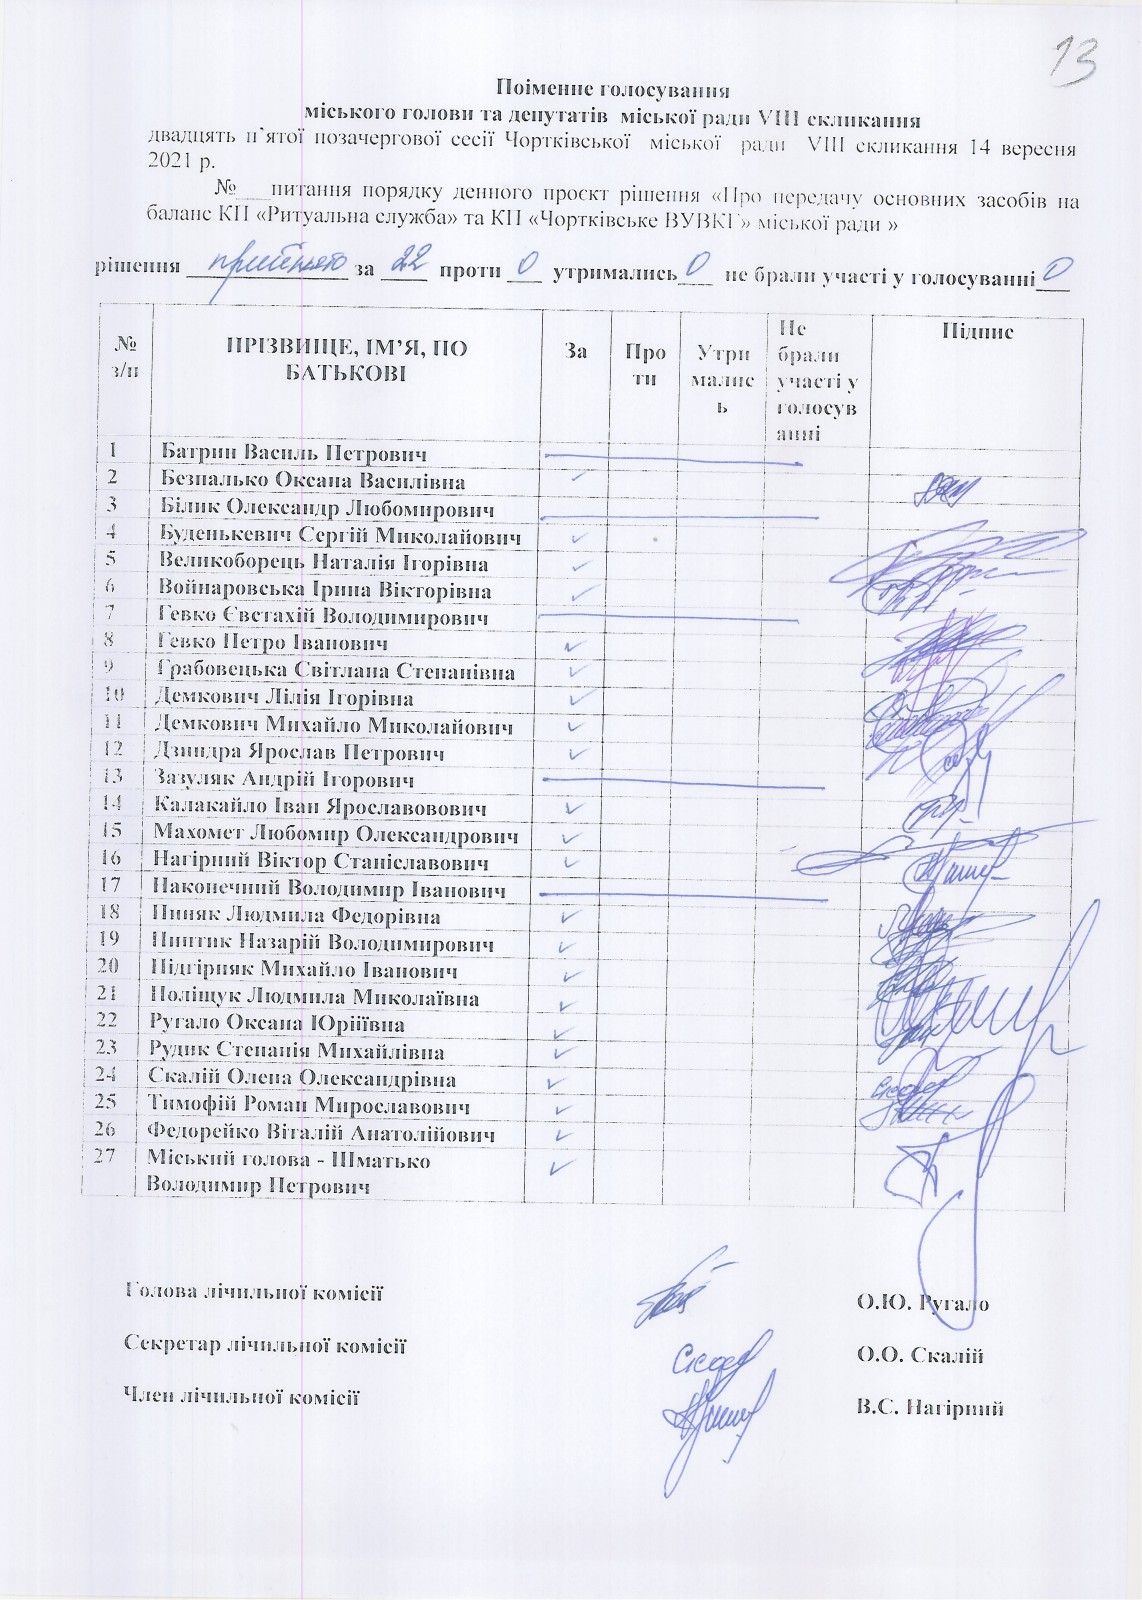 13
Поіменне голосування
міського голови та депутатів міської ради VIII скликання
двадцять п`ятої позачергової сесії Чортківської міської ради VIII скликання 14 вересня
2021 р.
№___питання порядку денного проєкт рішення «Про передачу основних засобів на
баланс КП «Ритуальна служба» та КП «Чортківське ВУВКГ» міської ради »
рішення прийнято за 22 проти 0 утримались 0 не брали участі у голосуванні 0
№ з/п ПРІЗВИЩЕ, ІМ’Я, ПО БАТЬКОВІ За Про ти Утри малис ь Не брали участі у голосув анні Підпис
1 Батрин Василь Петрович
2 Безпалько Оксана Василівна ✓
3 Білик Олександр Любомирович
4 Буденькевич Сергій Миколайович ✓
5 Великоборець Наталія Ігорівна ✓
6 Войнаровська Ірина Вікторівна ✓
7 Гевко Євстахій Володимирович
8 Гевко Петро Іванович ✓
9 Грабовецька Світлана Степанівна ✓
10 Демкович Лілія Ігорівна ✓
11 Демкович Михайло Миколайович ✓
12 Дзиндра Ярослав Петрович ✓
13 Зазуляк Андрій Ігорович
14 Калакайло Іван Ярославовович ✓
15 Махомет Любомир Олександрович ✓
16 Нагірний Віктор Станіславович ✓
17 Наконечний Володимир Іванович
18 Пиняк Людмила Федорівна ✓
19 Пинтик Назарій Володимирович ✓
20 Підгірняк Михайло Іванович ✓
21 Поліщук Людмила Миколаївна ✓
22 Ругало Оксана Юріїївна ✓
23 Рудик Степанія Михайлівна ✓
24 Скалій Олена Олександрівна ✓
25 Тимофій Роман Мирославович ✓
26 Федорейко Віталій Анатолійович ✓
27 Міський голова - Шматько ✓
Володимир Петрович
Голова лічильної комісії О.Ю. Ругало
Секретар лічильної комісії О.О. Скалій
Член лічильної комісії В.С. Нагірний